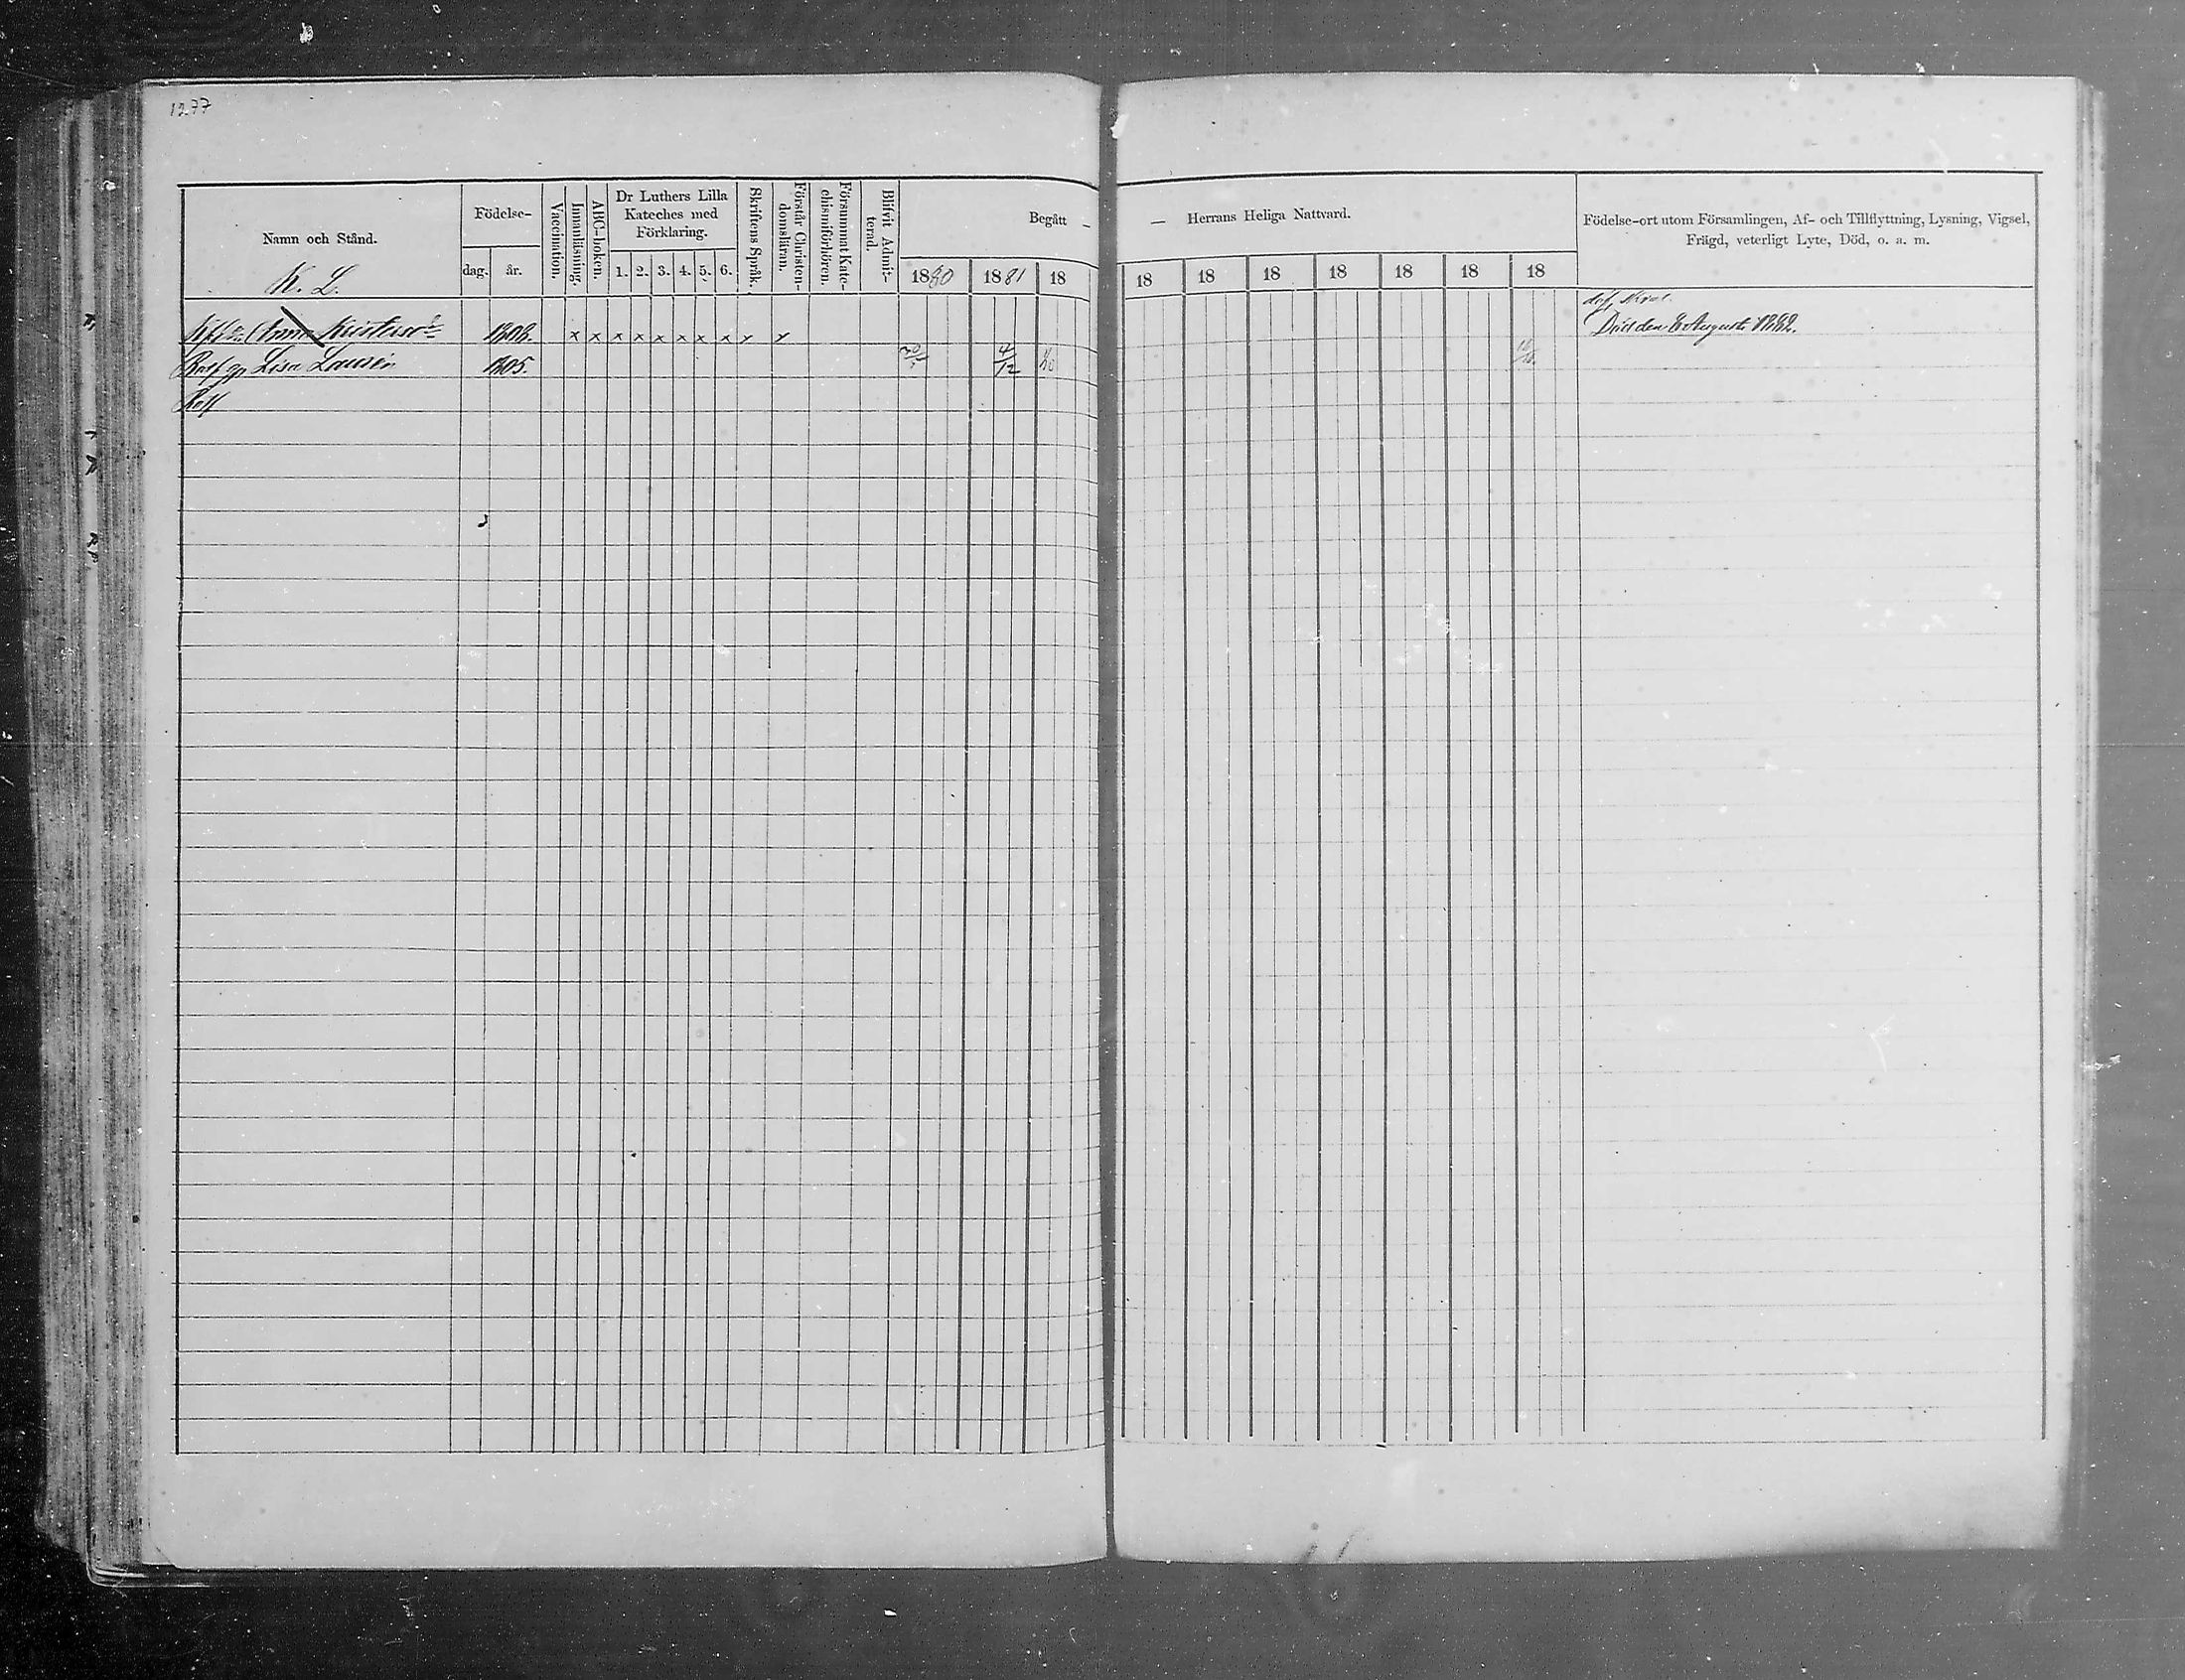 1277
Namn och Stånd.
K. L.
Födelse-
dag.
år.
Vaccination.
Innanläsning.
ABC-boken.
Dr Luthers Lilla
Kateches med
Förklaring.
1. 2. 3. 4. 5. 6.
Skriftens Språk.
Förstår Christen-
domsläran.
Försummat Kate-
chismiförhören.
Blifvit Admit-
terad.
Begått —
1880 1881 18
— Herrans Heliga Nattvard.
18 18 18 18 18 18 18
Födelse-ort utom Församlingen, Af- och Tillflyttning, Lysning, Vigsel,
Frägd, veterligt Lyte, Död, o. a. m.
Anna 1808. x x x x x x x x x x
Död den 6 Augusti 1882.
Lisa 1805. 4/12